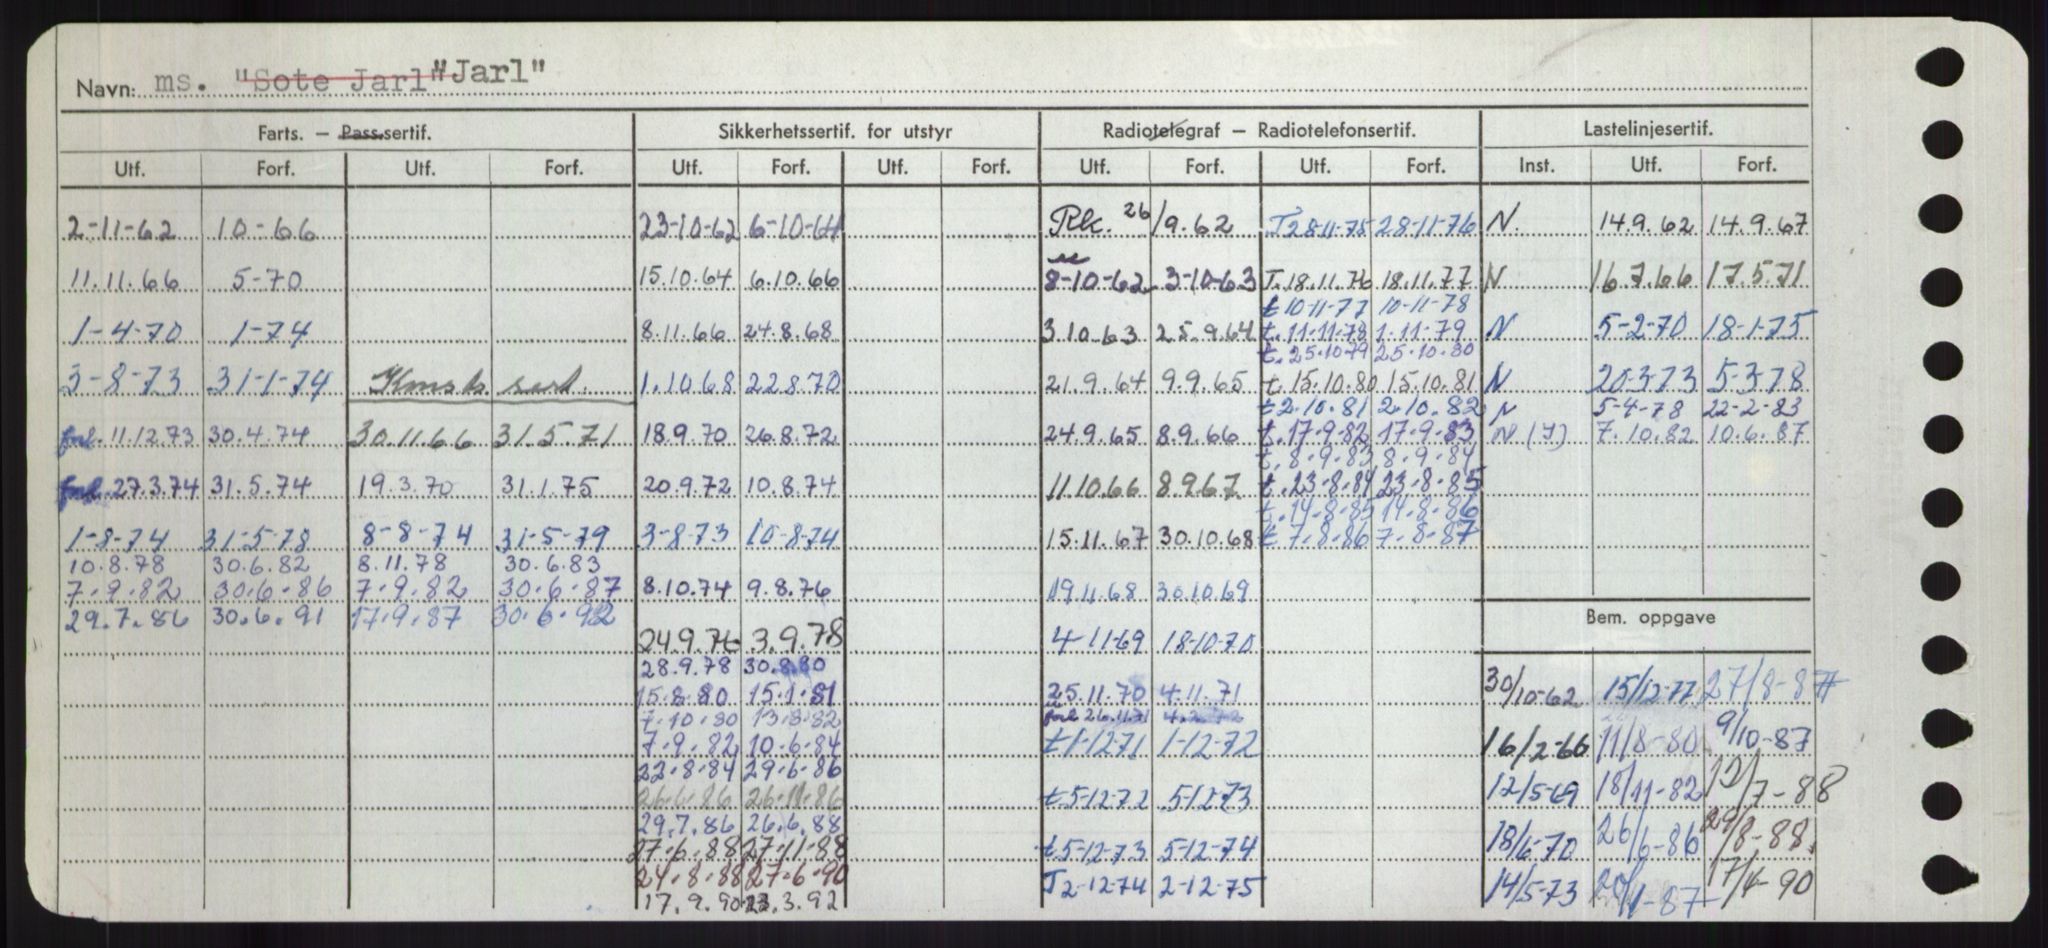 Navn: ms. "Sote Jarl" "Jarl"
Farts. – Pass.sertif. Sikkerhetssertif. for utstyr Radiotelegraf – Radiotelefonsertif. Lastelinjesertif.
Utf. Forf. Utf. Forf. Utf. Forf. Utf. Forf. Utf. Forf. Utf. Forf. Inst. Utf. Forf.
2-11-62 10-66 23-10-62 6-10-64 Rk. 26/9.62 T28-11-75 28-11-76 N. 14.9.62 14.9.67
11.11.66 5-70 15.10.64 6.10.66 8-10-62 3-10-63 T.18.11.76 18.11.77 N 16.7.66 17.5.71
t 10-11-77 10-11-78
1-4-70 1-74 8.11.66 24.8.68 3.10.63 25.9.64 t.11-11-78 1-11-79 N 5-2-70 18-1-75
t.25.10.79 25.10.80
3-8-73 31-1-74 1.10.68 22.8.70 21.9.64 9.9.65 t.15.10.80 15.10.81 N 20-3-73 5-3-78
t 2.10.81 2.10.82 N 5-4-78 22-2-83
forl. 11.12.73 30.4.74 30.11.66 31.5.71 18.9.70 26.8.72 24.9.65 8.9.66 t.17.9.82 17.9.83 N (I) 7.10.82 10.6.87
t.8.9.83 8.9.84
forl. 27.3.74 31.5.74 19.3.70 31.1.75 20.9.72 10.8.74 11.10.66 8.9.67 t.23.8.84 23.8.85
t.14.8.85 14.8.86
1-8-74 31-5-78 8-8-74 31-5-79 3-8-73 10-8-74 15.11.67 30.10.68 t 7.8.86 7.8.87
10.8.78 30.6.82 8.11.78 30.6.83
7.9.82 30.6.86 7.9.82 30.6.87 8.10.74 9.8.76 19.11.68 30.10.69
29.7.86 30.6.91 17.9.87 30.6.92 Bem. oppgave
24.9.76 3.9.78 4-11-69 18-10-70
28.9.78 30.8.80
15.8.80 15.1.81 25.11.70 4.11.71 30/10-62 15/12-77 27/8-87
7.10.80 13.8.82 forl 26.11.71
7.9.82 10.6.84 t1-12-71 1-12-72 16/2-66 11/8-80 9/10-87
22.8.84 29.6.86
26.6.86 26.11.86 t.5-12-72 5-12-73 12/5-69 18/11-82 12/7-88
29.7.86 26.6.88
27.6.88 27.11.88 t.5-12-73 5-12-74 18/6-70 26/6-86 29/8-88
24.8.88 27.6.90 T 2-12-74 2-12-75 14/5-73 17/4-90
17.9.90 3.92